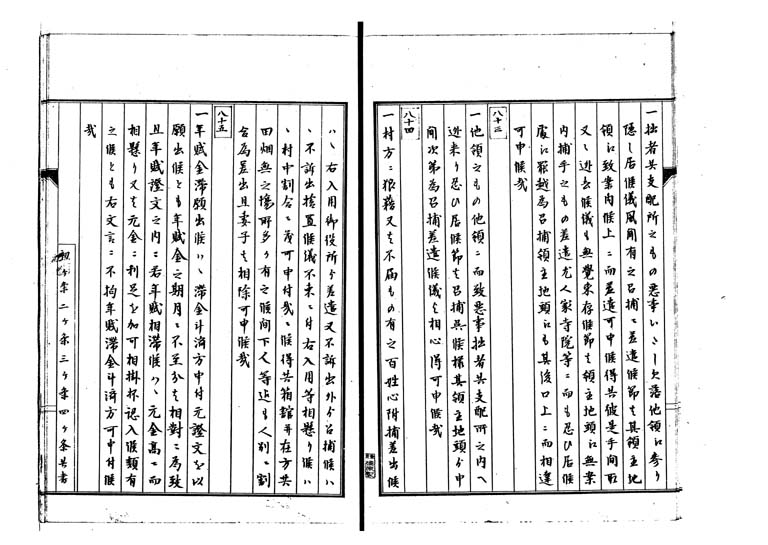 一拙者共支配所之もの悪事いたし欠落他領江参り
隠し居候儀風聞有之召捕ニ差遣候節は其領主地
領江致案内候上ニ而差遣可申候得共彼是手間取
又は逃去候儀も無覚束存候節は領主地頭江無案
内捕手之もの差遣尤人家寺院等ニ而も忍ひ居候
處江罷越為召捕領主地頭江も其後口上ニ而相達
可申候哉
八十三
一他領之もの他領ニ而致悪事拙者共支配所之内へ
逃来り忍ひ居候節は召捕其候様其領主地頭ゟ申
聞次第為召捕差遣候儀は相心得可申候哉
八十四
一村方ニ狼藉又は不届もの有之百姓心附捕差出候
ハヽ右入用御役所ゟ差遣又不訴出外ゟ召捕候ハ
ヽ不訴出捨置候儀不束ニ付右入用等相懸り候ハ
ヽ村中割合ニ茂可申付哉ニ候得共箱館并在方共
田畑無之場所多く有之候間下人等迄も人別ニ割
合為差出且妻子は相除可申候哉
八十五
一年賦金滞願出候ハヽ滞金斗済方申付元證文を以
願出候とも年賦金之期月ニ不至分は相對ニ為致
且年賦證文之内ニ若年賦相滞候ハヽ元金高ニ而
相懸り又は元金ニ利足を加可相掛抔認入候類有
之候とも右文言ニ不拘年賦滞金斗済方可申付候
哉
ヶ条二ヶ条三ヶ条四ヶ条共書